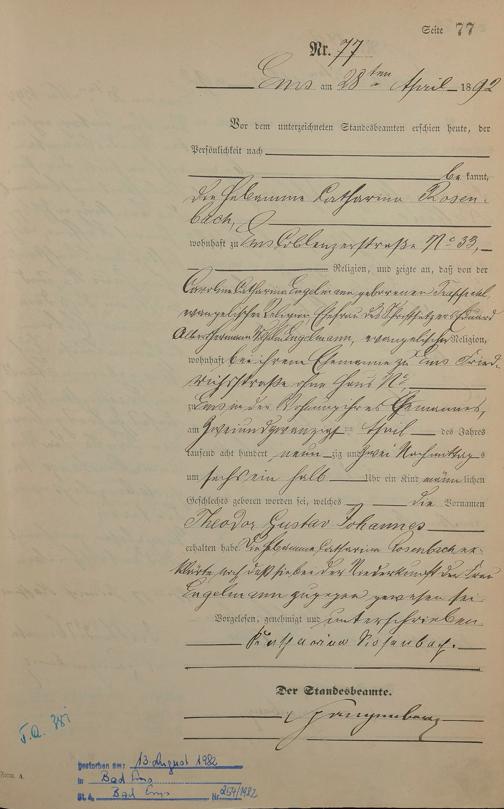 Seite 77
Nr. 77
Ems am 28ten April 1892
Vor dem unterzeichneten Standesbeamten erschien heute, der
Persönlichkeit nach
be kannt,
die Hebamme Catharina Rosen-
bach,
wohnhaft zu Ems Coblenzerstraße No 33,
Religion, und zeigte an, daß von der
Caroline Catharina Engelmann geborenen
evangelischer Religion Ehefrau des Schriftsetzers Eduard
Albert Hermann Wilhelm Engelmann, evangelischer Religion,
wohnhaft bei ihrem Ehemanne zu Ems Fried-
richsstraße ohne Haus No,
zu Ems in der Wohnung ihres Ehemannes,
am zweiundzwanzigsten April des Jahres
tausend acht hundert neun zig und zwei Nachmittags
um sechs ein halb Uhr ein Kind männ lichen
Geschlechts geboren worden sei, welches die Vornamen
Theodor Gustav Johannes
erhalten habe. Die Hebamme Catharina Rosenbach er-
klärte noch daß sie bei der Niederkunft der Frau
Engelmann zugegen gewesen sei
Vorgelesen, genehmigt und unterschrieben
Katharina Rosenbach.
Der Standesbeamte.
gestorben am: 13. August 1982
in Bad Ems
St. A. Bad Ems Nr. 254/1982